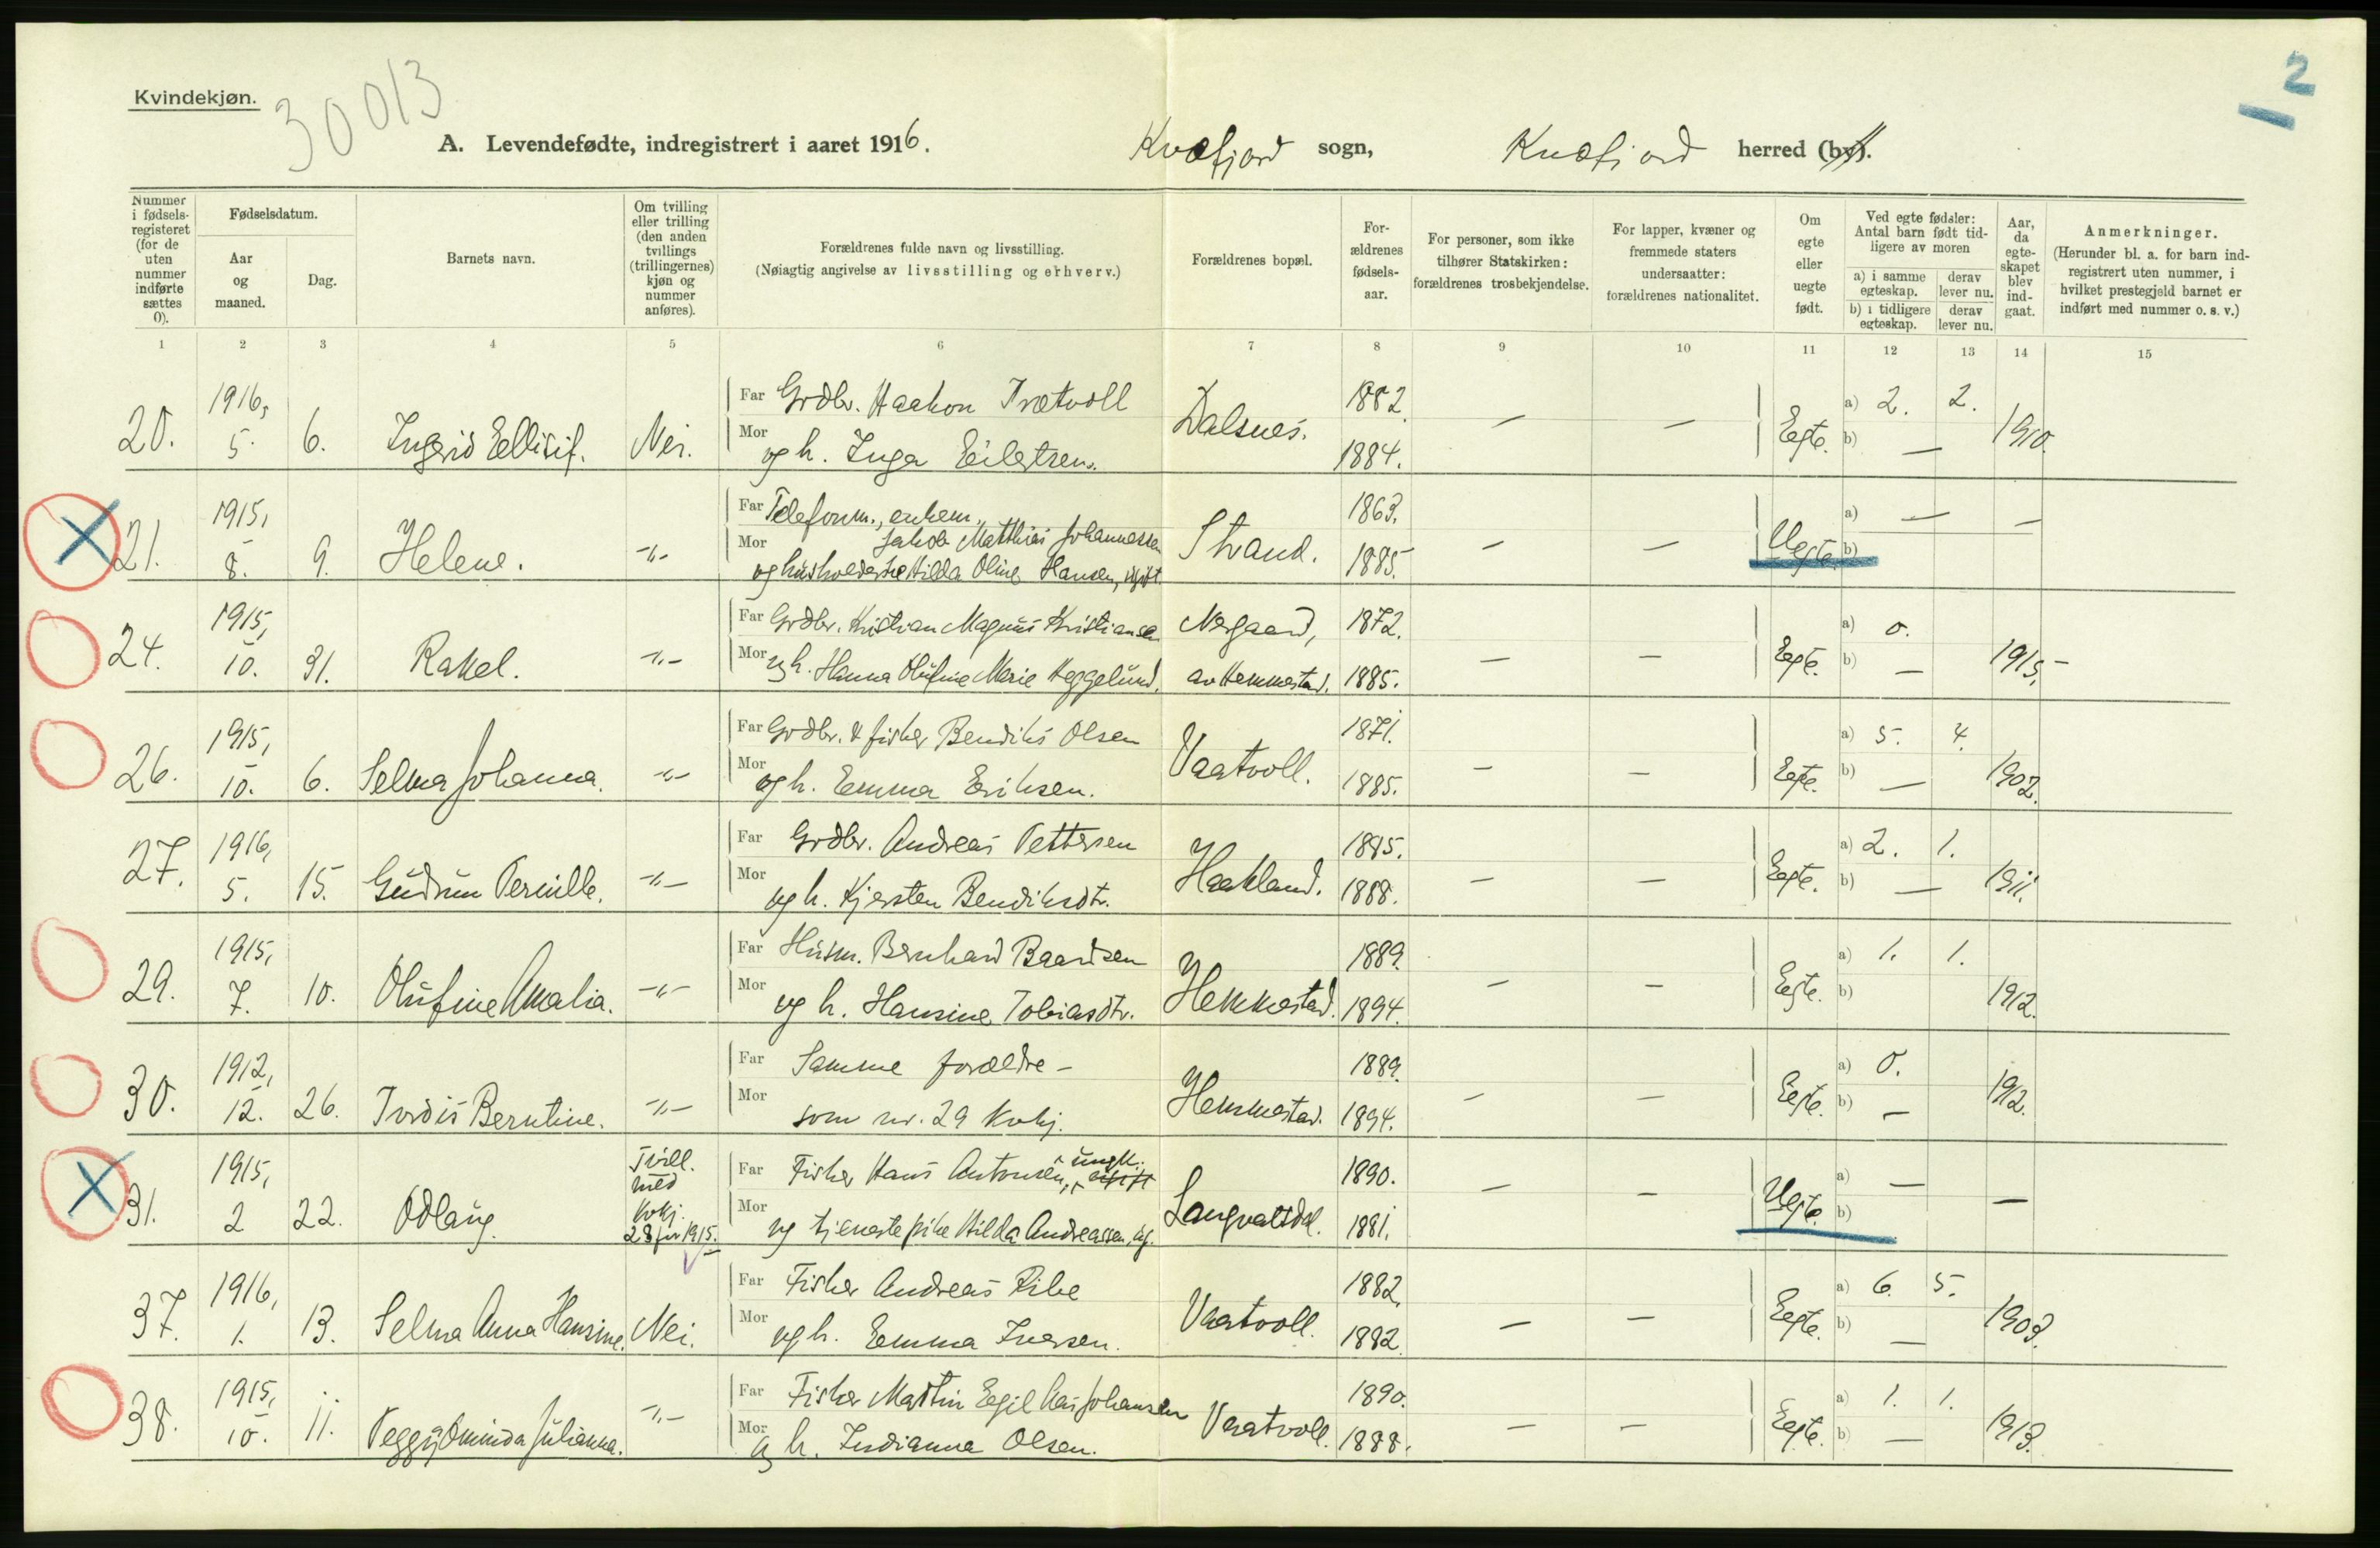 Kvindekjøn.
30013
2
A. Levendefødte, indregistrert i aaret 1916. Kvæfjord sogn, Kvæfjord herred (by).
Nummer i fødselsregisteret (for de uten nummer indførte sættes 0).
Fødselsdatum.
Aar og maaned.
Dag.
Barnets navn.
Om tvilling eller trilling (den anden tvillings (trillingernes) kjøn og nummer anføres).
Forældrenes fulde navn og livsstilling.
(Nøiagtig angivelse av livsstilling og erhverv.)
Forældrenes bopæl.
Forældrenes fødselsaar.
For personer, som ikke tilhører Statskirken: forældrenes trosbekjendelse.
For lapper, kvæner og fremmede staters undersaatter: forældrenes nationalitet.
Om egte eller uegte født.
Ved egte fødsler: Antal barn født tidligere av moren
a) i samme egteskap. derav lever nu.
b) i tidligere egteskap. derav lever nu.
Aar, da egteskapet blev indgaat.
Anmerkninger.
(Herunder bl. a. for barn indregistrert uten nummer, i hvilket prestegjeld barnet er indført med nummer o. s. v.)
1 2 3 4 5 6 7 8 9 10 11 12 13 14 15
20. 1916, 5. 6. Ingrid Ellisif. Nei. Far Grdbr. Haakon Trætvoll Dalsnes. 1882. — — Egte. a) 2. 2. 1910.
Mor og h. Inga Eilertsen. 1884. b) —
21. 1915, 8. 9. Helene. -"- Far Telefonm., enkem., Jakob Matthias Johannessen Strand. 1863. — — Uegte. a) — —
Mor og husholderske Hilda Oline Hansen, ugift 1885. b)
24. 1915, 10. 31. Rakel. -"- Far Grdbr. Kristian Magnus Kristiansen Nergaard, 1872. — — Egte. a) 0. 1915,
Mor og h. Hanna Olufine Marie Heggelund. av Hemmestad. 1885. b) —
26. 1915, 10. 6. Selma Johanna. -"- Far Grdbr. & fisker Bendiks Olsen Vaatvoll. 1871. — — Egte. a) 5. 4. 1902.
Mor og h. Emma Eriksen. 1885. b) —
27. 1916, 5. 15. Gudrun Pernille. -"- Far Grdbr. Andreas Pettersen Haakland. 1885. — — Egte. a) 2. 1. 1911.
Mor og h. Kjersten Bendiksdtr. 1888. b) —
29. 1915, 7. 10. Olufine Amalia. -"- Far Husm. Bernhard Baardsen Hemmestad. 1889. — — Egte. a) 1. 1. 1912.
Mor og h. Hansine Tobiasdtr. 1894. b)
30. 1912, 12. 26. Tordis Berntine. -"- Far Samme forældre - Hemmestad. 1889. — — Egte. a) 0. 1912.
Mor som nr. 29 Kvkj. 1894. b) —
31. 1915, 2 22. Odlaug. Tvill. med Kvkj. 28 for 1915. Far Fisker Hans Antonsen, ungk. Langvatsdal. 1890. — — Uegte. a) — —
Mor og tjenestepike Hilda Andreassen, ug. 1881. b)
37. 1916, 1. 13. Selma Anna Hansine. Nei. Far Fisker Andreas Ribe Vaatvoll. 1882. — — Egte. a) 6. 5. 1903.
Mor og h. Emma Iversen. 1882. b) —
38. 1915, 10. 11. Peggy Ominda Julianna. -"- Far Fisker Martin Egil Kas Johansen Vaatvoll. 1890. — — Egte. a) 1. 1. 1913.
Mor og h. Indianna Olsen. 1888. b) —